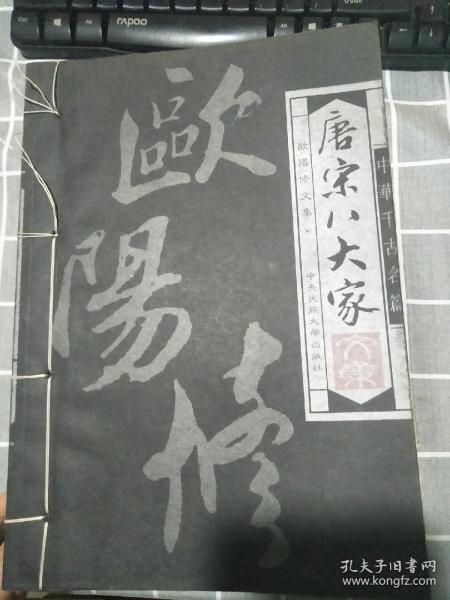 rapoo
歐陽修
唐宋八大家
歐陽修文集
中央民族大学出版社
文集
中華千古名篇
孔夫子旧书网
www.kongfz.com